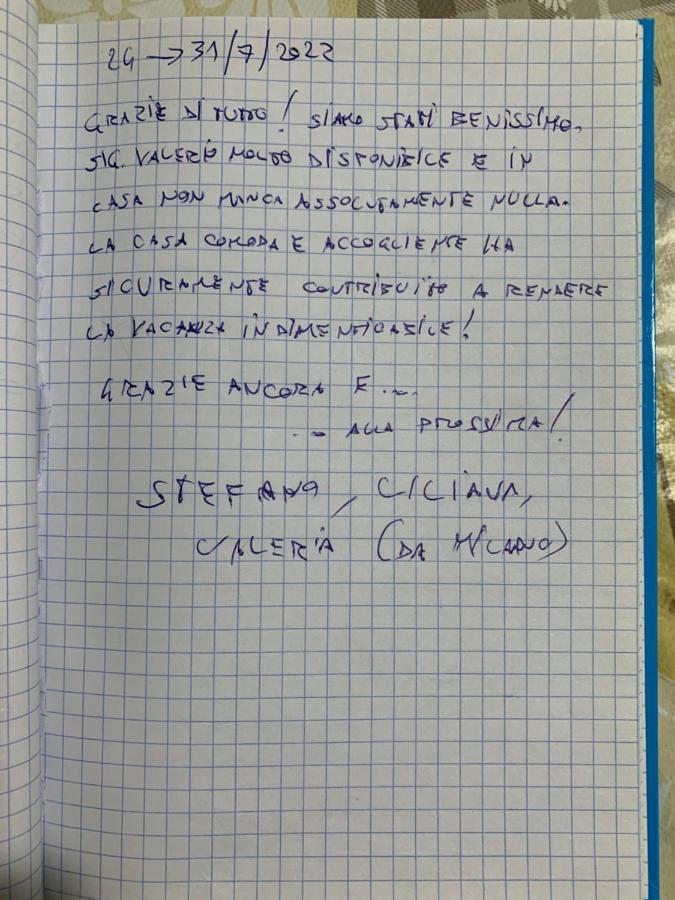 24 → 31/7/2022
GRAZIE DI TUTTO! SIAMO STATI BENISSIMO.
SIG. VALERIO MOLTO DISPONIBILE E IN
CASA NON MANCA ASSOLUTAMENTE NULLA.
LA CASA COMODA E ACCOGLIENTE HA
SICURAMENTE CONTRIBUITO A RENDERE
LA VACANZA INDIMENTICABILE!
GRAZIE ANCORA E ...
... ALLA PROSSIMA!
STEFANO, LILIANA,
VALERIA (DA MILANO)